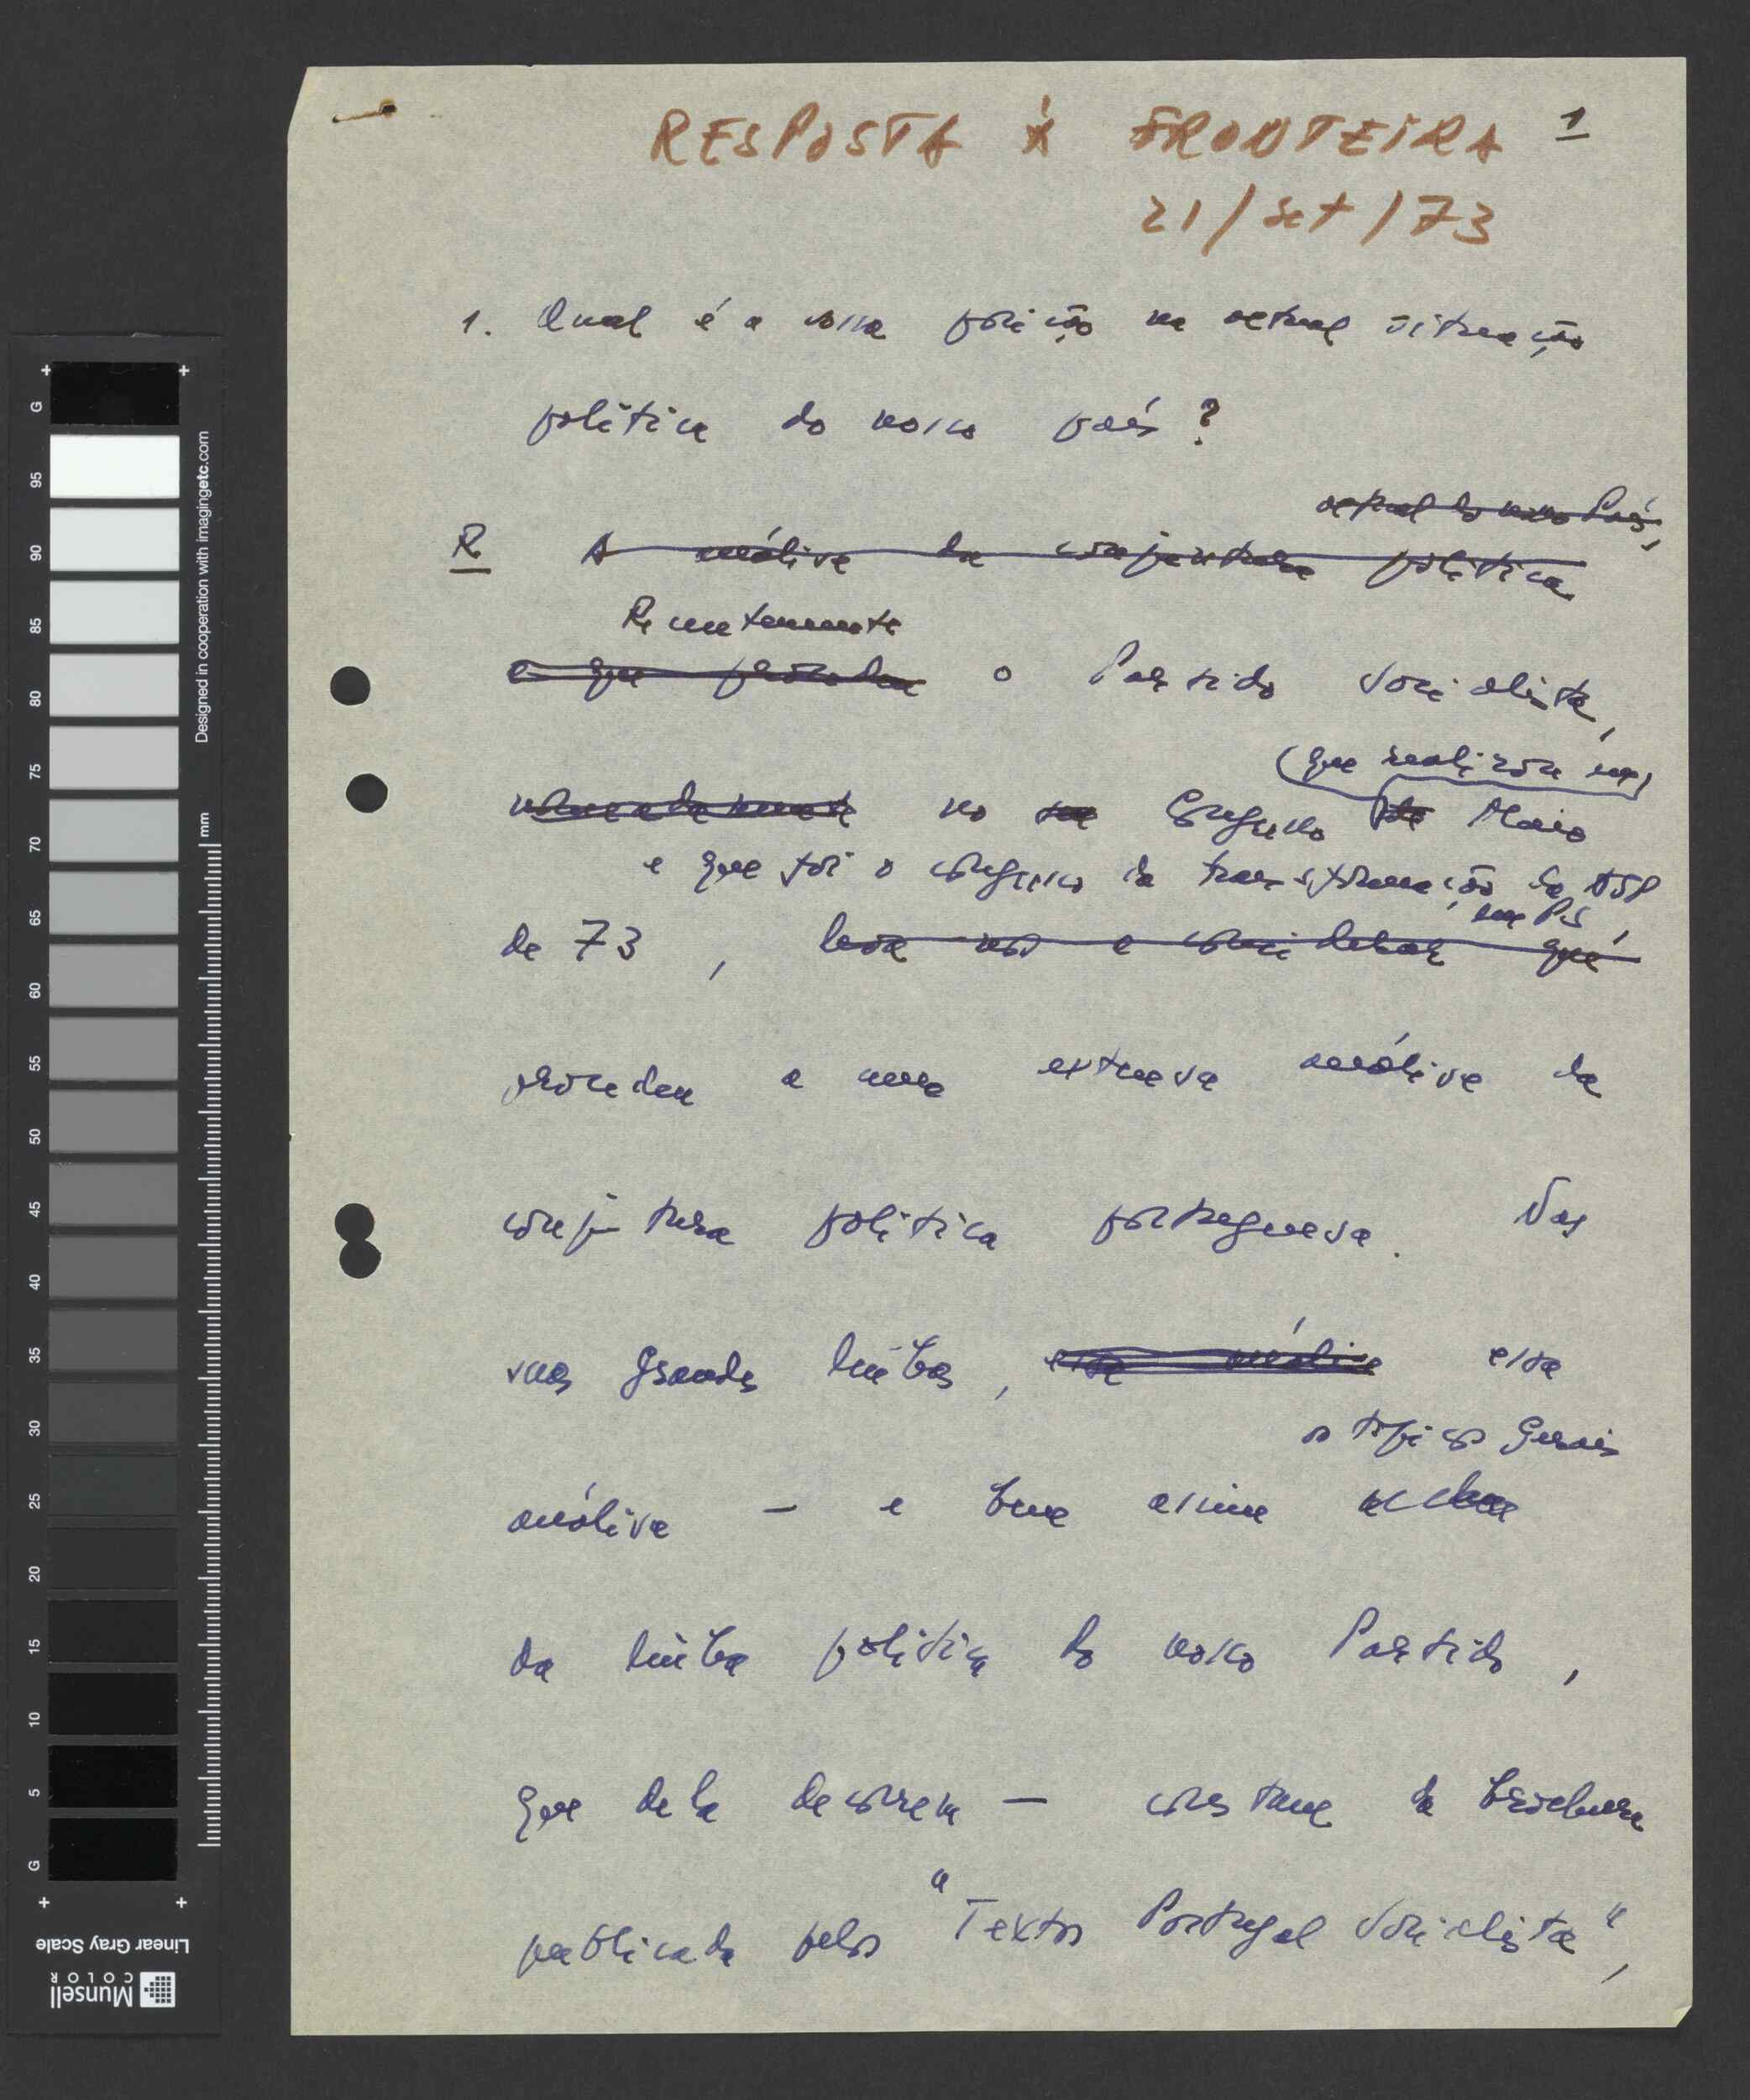 RESPOSTA À FRONTEIRA 1
21/set/73
1. Qual é a vossa posição na actual situação
política do nosso país?
actual do nosso País,
R A análise da conjuntura política
Recentemente
a que procedeu o Partido Socialista,
(que realizou em)
no seu Congresso de Maio
e que foi o congresso da transformação da ASP
em PS,
de 73, leva-nos a considerar que
procedeu a uma extensa análise da
conjuntura política portuguesa. Nas
suas grandes linhas, essa análise essa
os tópicos gerais
análise — e bem assim
da linha política do nosso Partido,
que dela decorrem — constam da brochura
publicada pelos "Textos Portugal Socialista",
G 95 90 85 80 75 70 65 60 55 50 45 40 35 30 25 20 15 10 5 G
mm
Designed in cooperation with imagingetc.com
Linear Gray Scale
Munsell
COLOR